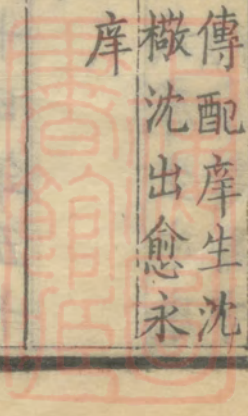 傳配庠生沈
檝沈出愈永
庠